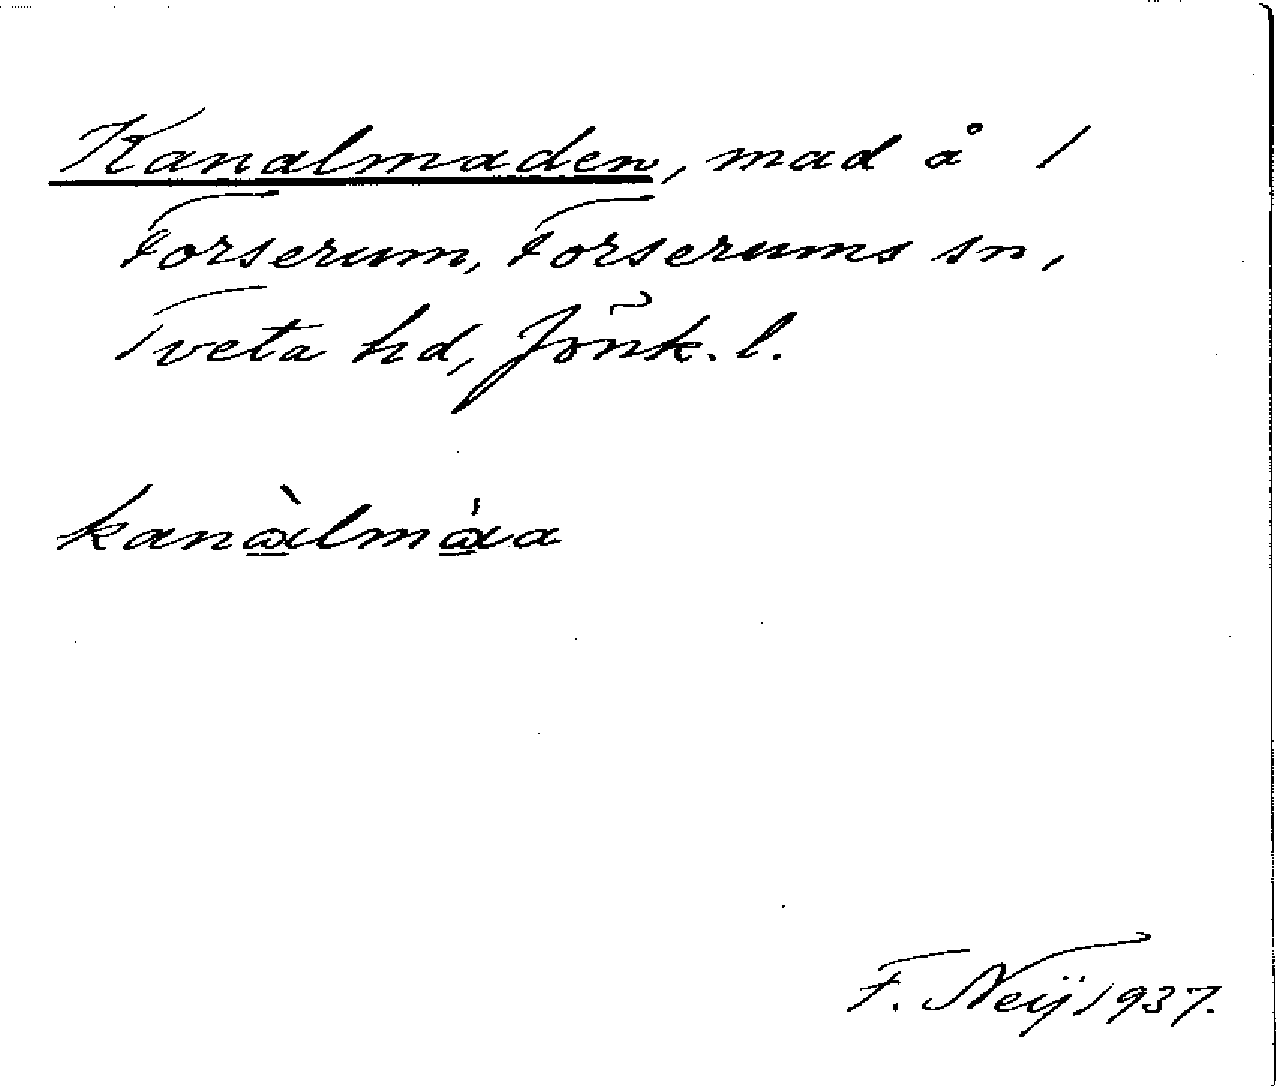 Kanalmaden, mad å 1
Forserum, Forserums sn,
Tveta hd, Jönk. l.
kanàlmáa
F. Neij 1937.